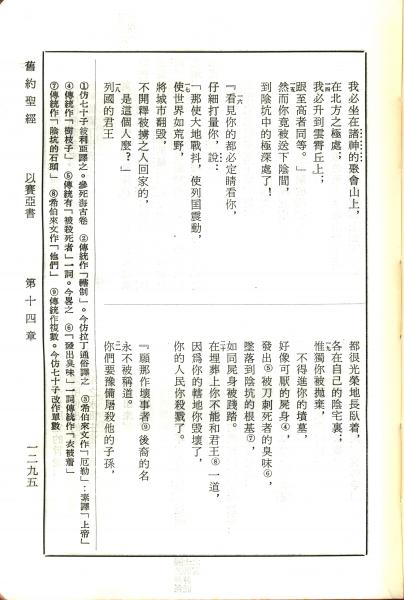 我必坐在諸神的聚會山上，
在北方之極處；
我必升到雲霄丘上；
跟至高者同等。」
一五
然而你竟被送下陰間，
到陰坑中的極深處了！
一六
『看見你的都必定睛看你，
仔細打量你，說：
「那使大地戰抖，使列國震動，
一七
使世界如荒野，
將城市翻毀，
不開釋被擄之人回家的，
是這個人麼？」
一八
列國的君王
都很光榮地長臥着，
各在自己的陰宅裏；
一九
惟獨你被拋棄，
不得進你的墳墓，
好像可厭的屍身④，
發出⑤被刀刺死者的臭味⑥，
墜落到陰坑的根基⑦，
如同屍身被踐踏。
二〇
在埋葬上你不能和君王⑧一道，
因爲你的轄地你毀壞了，
你的人民你殺戮了。
『願那作壞事者⑨後裔的名
永不被稱道。
二一
你們要豫備屠殺他的子孫，
①仿七十子敍利亞譯之。參死海古卷　②傳統作「轄制」。今仿拉丁通俗譯之　③希伯來文作「厄勒」：素譯「上帝」
④傳統作「樹枝子」　⑤傳統有「被殺死者」一詞。今畧之　⑥「發出臭味」一詞傳統作「衣被着」
⑦傳統作「陰坑的石頭」　⑧希伯來文作「他們」　⑨傳統作複數。今仿七十子改作單數
舊約聖經　以賽亞書　第十四章　一二九五